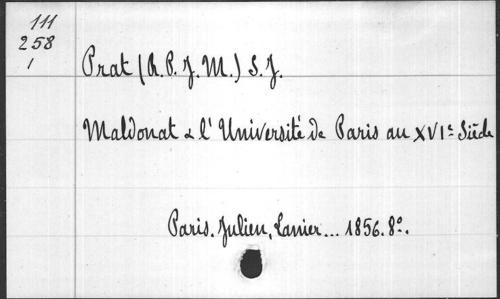 111
258
1
Prat (R. P. J. M.) S. J.
Maldonat & l' Université de Paris au XVIe Siècle
Paris. Julien, Lanier... 1856. 8º.